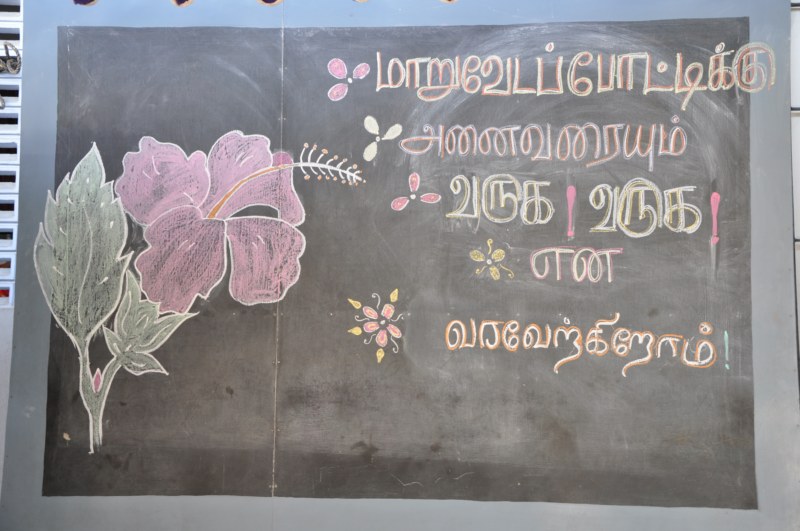 மாறுவேடப்போட்டிக்கு
அனைவரையும்
வருக! வருக!
என
வரவேற்கிறோம்!